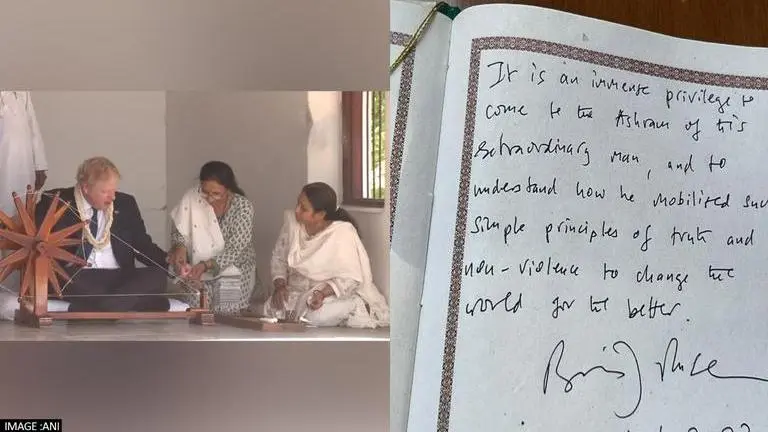 It is an immense privilege to
come to the Ashram of this
extraordinary man, and to
understand how he mobilised such
simple principles of truth and
non-violence to change the
world for the better.
IMAGE :ANI